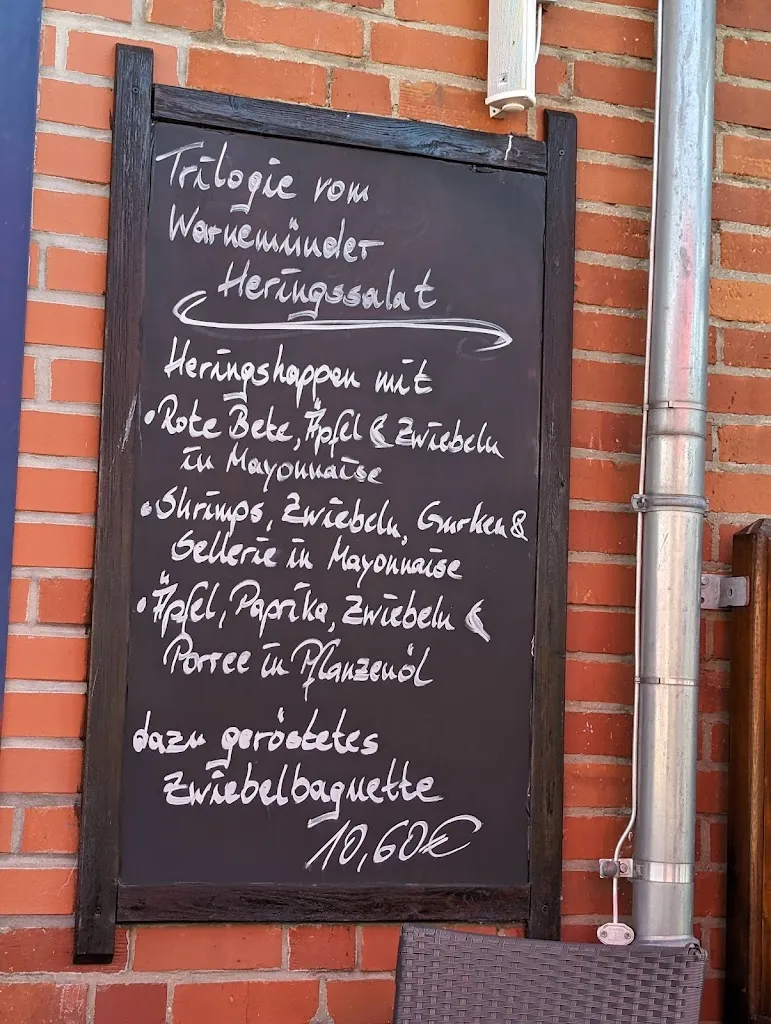 Trilogie vom
Warnemünder
Heringssalat
Heringshappen mit
• Rote Bete, Äpfel & Zwiebeln
in Mayonnaise
• Shrimps, Zwiebeln, Gurken &
Sellerie in Mayonnaise
• Äpfel, Paprika, Zwiebeln &
Porree in Pflanzenöl
dazu geröstetes
Zwiebelbaguette
10,60€